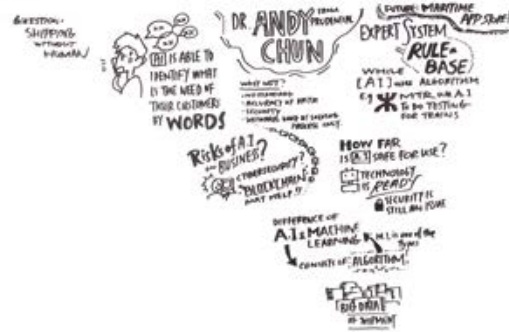 QUESTION:
SHIPPING
WITHOUT
HUMAN
AI IS ABLE TO
IDENTIFY WHAT
IS THE NEED OF
THEIR CUSTOMERS
BY WORDS
DR. ANDY
CHUN
FROM
PRUDENTIAL
WHY NOT?
SECURITY
FUTURE: MARITIME
APP STORE!
EXPERT SYSTEM
RULE-
BASE
WHILE
[A.I] USES ALGORITHM
Eg MTR USE A.I
TO DO TESTING
FOR TRAINS
Risks of A.I
IN BUSINESS?
CYBERSECURITY?
BLOCKCHAIN
MAY HELP!!
HOW FAR
IS A.I SAFE FOR USE?
TECHNOLOGY
IS READY
SECURITY IS
STILL AN ISSUE
DIFFERENCE OF
A.I & MACHINE
LEARNING
M.L is one of the
Types
CONSISTS OF ALGORITHM
BIG DATA
OF SHIPMENT